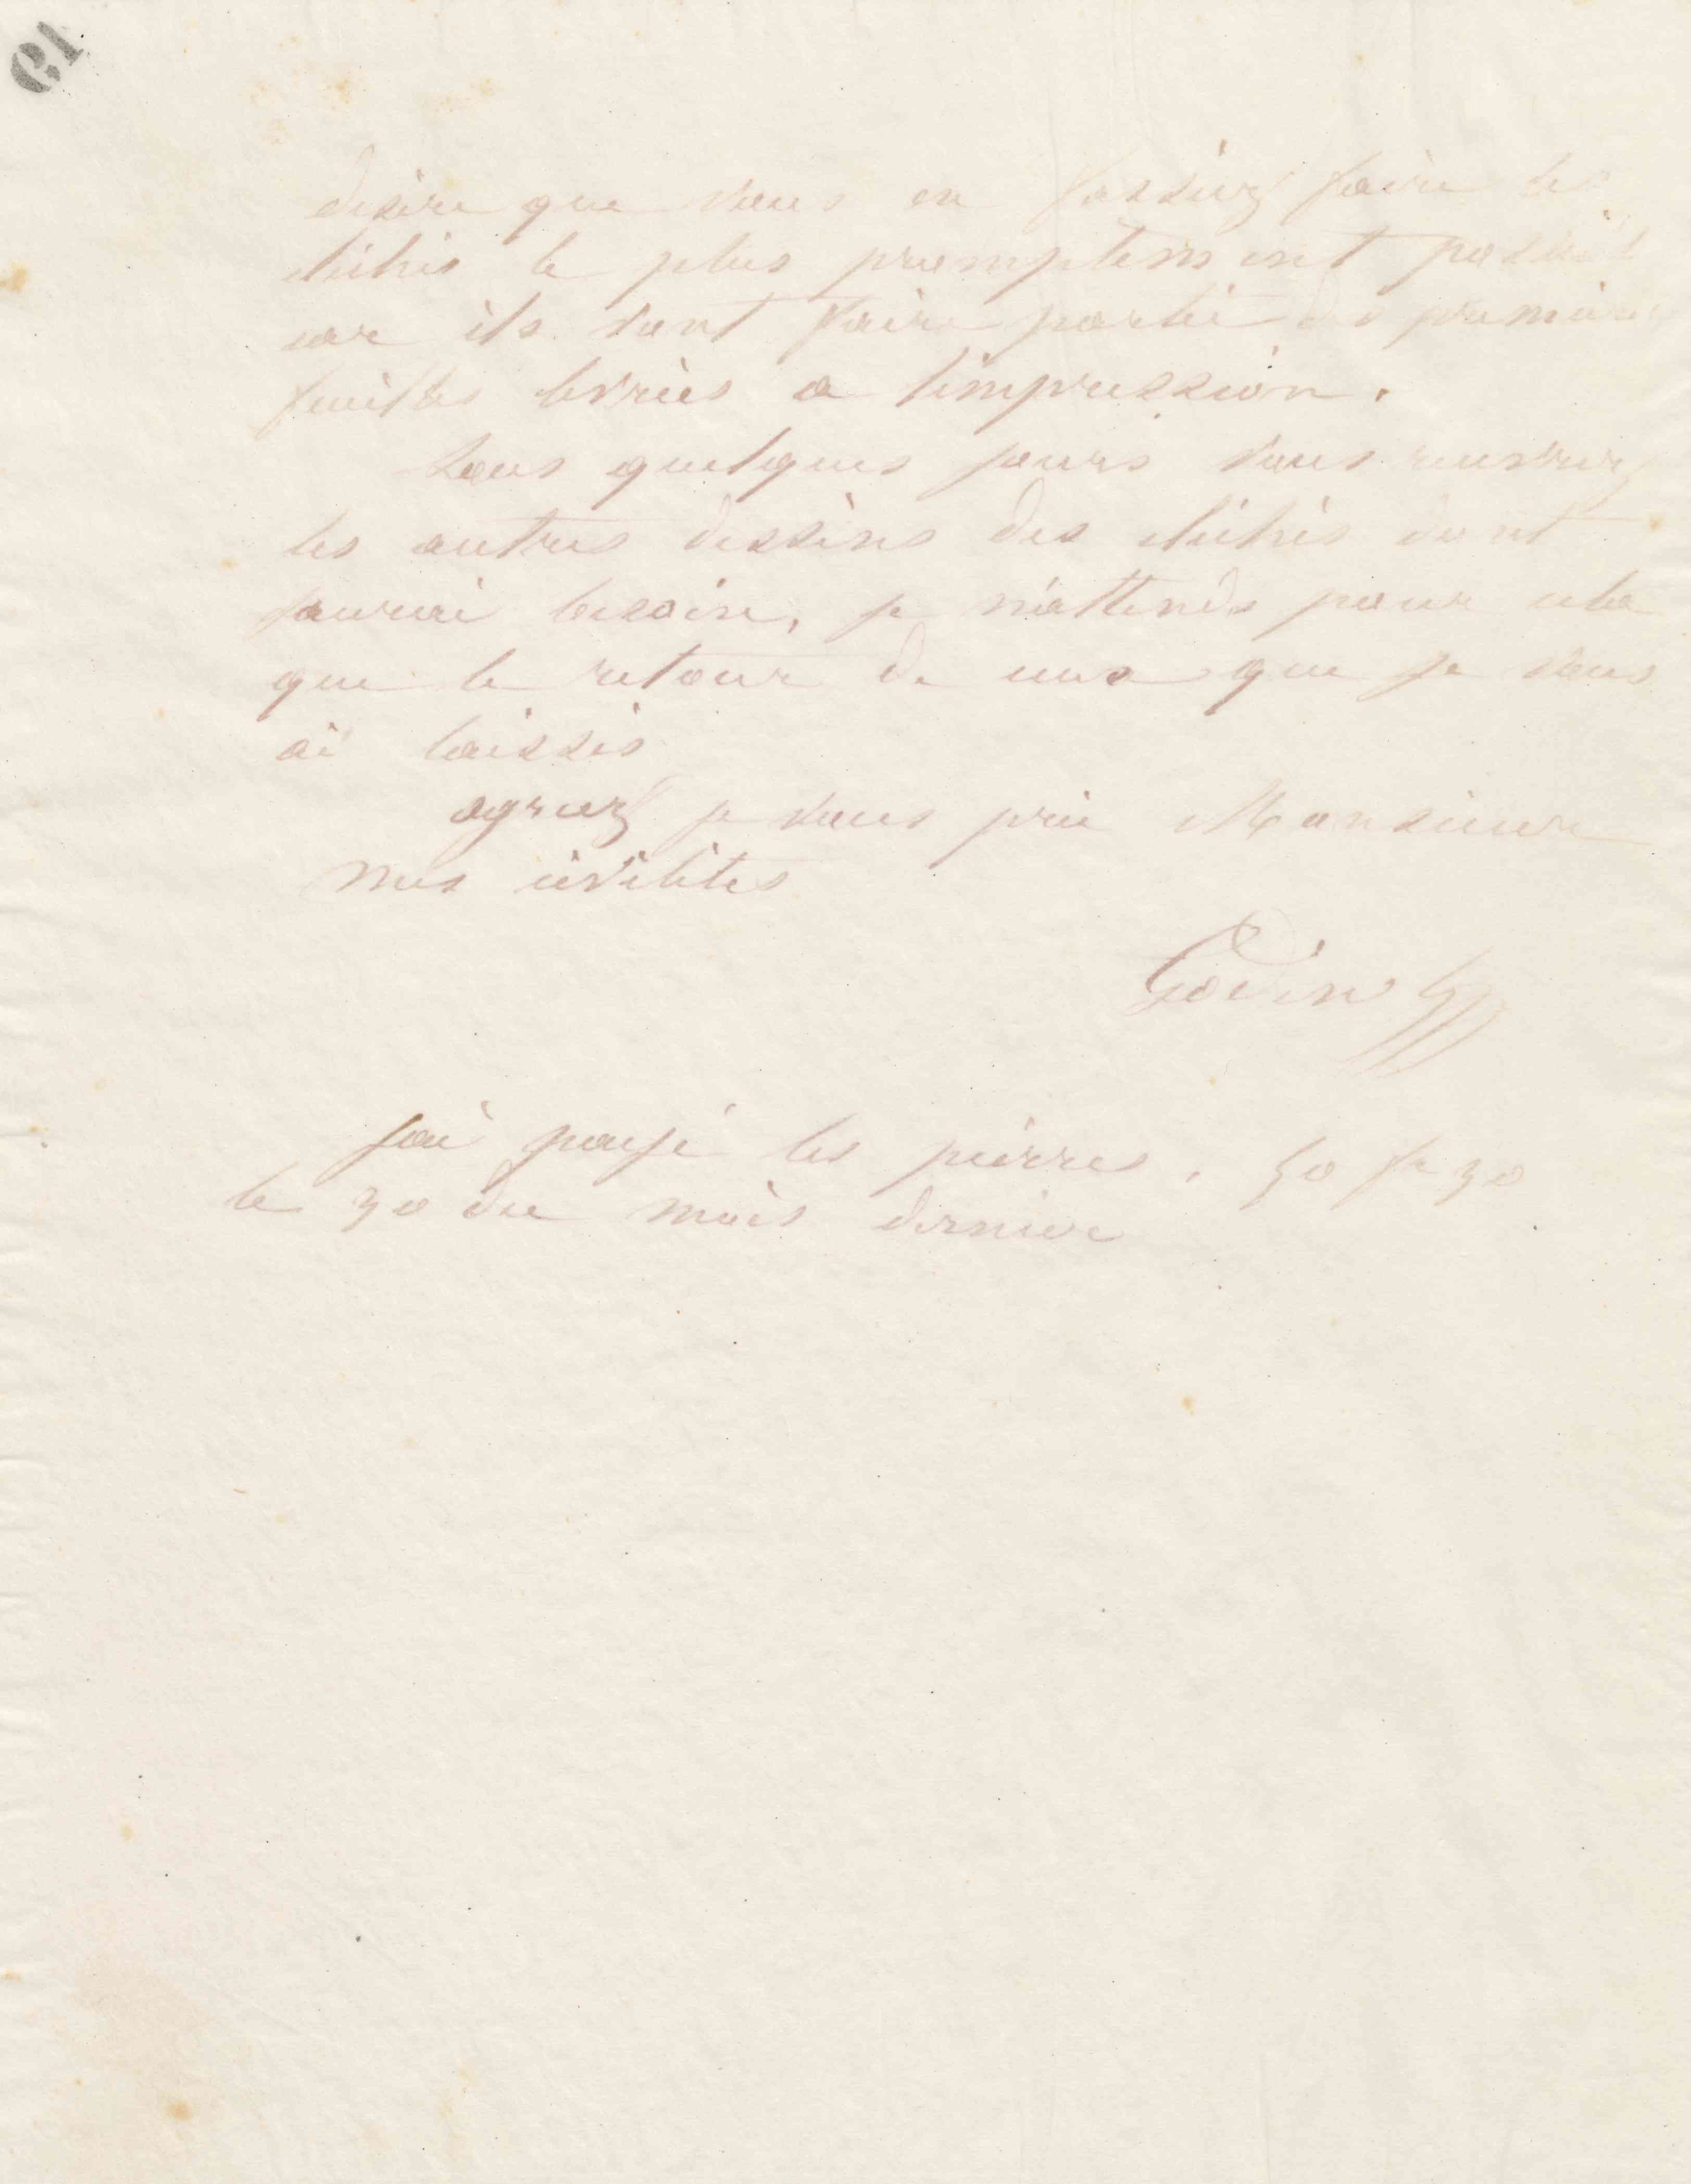 desire que vous en fassiez faire les
clichés le plus promptement possible
car ils vont faire partie des premières
feuilles livrées a limpression.
Sous quelques jours vous recevrez
les autres dessins des clichés dont
jaurai besoin, je nattends pour cela
que le retour de ceux que je vous
ai laissés
agreez je vous prie Monsieur
mes civilités
Godin
jai payé les pierres, 50 fr 30
le 30 du mois dernier